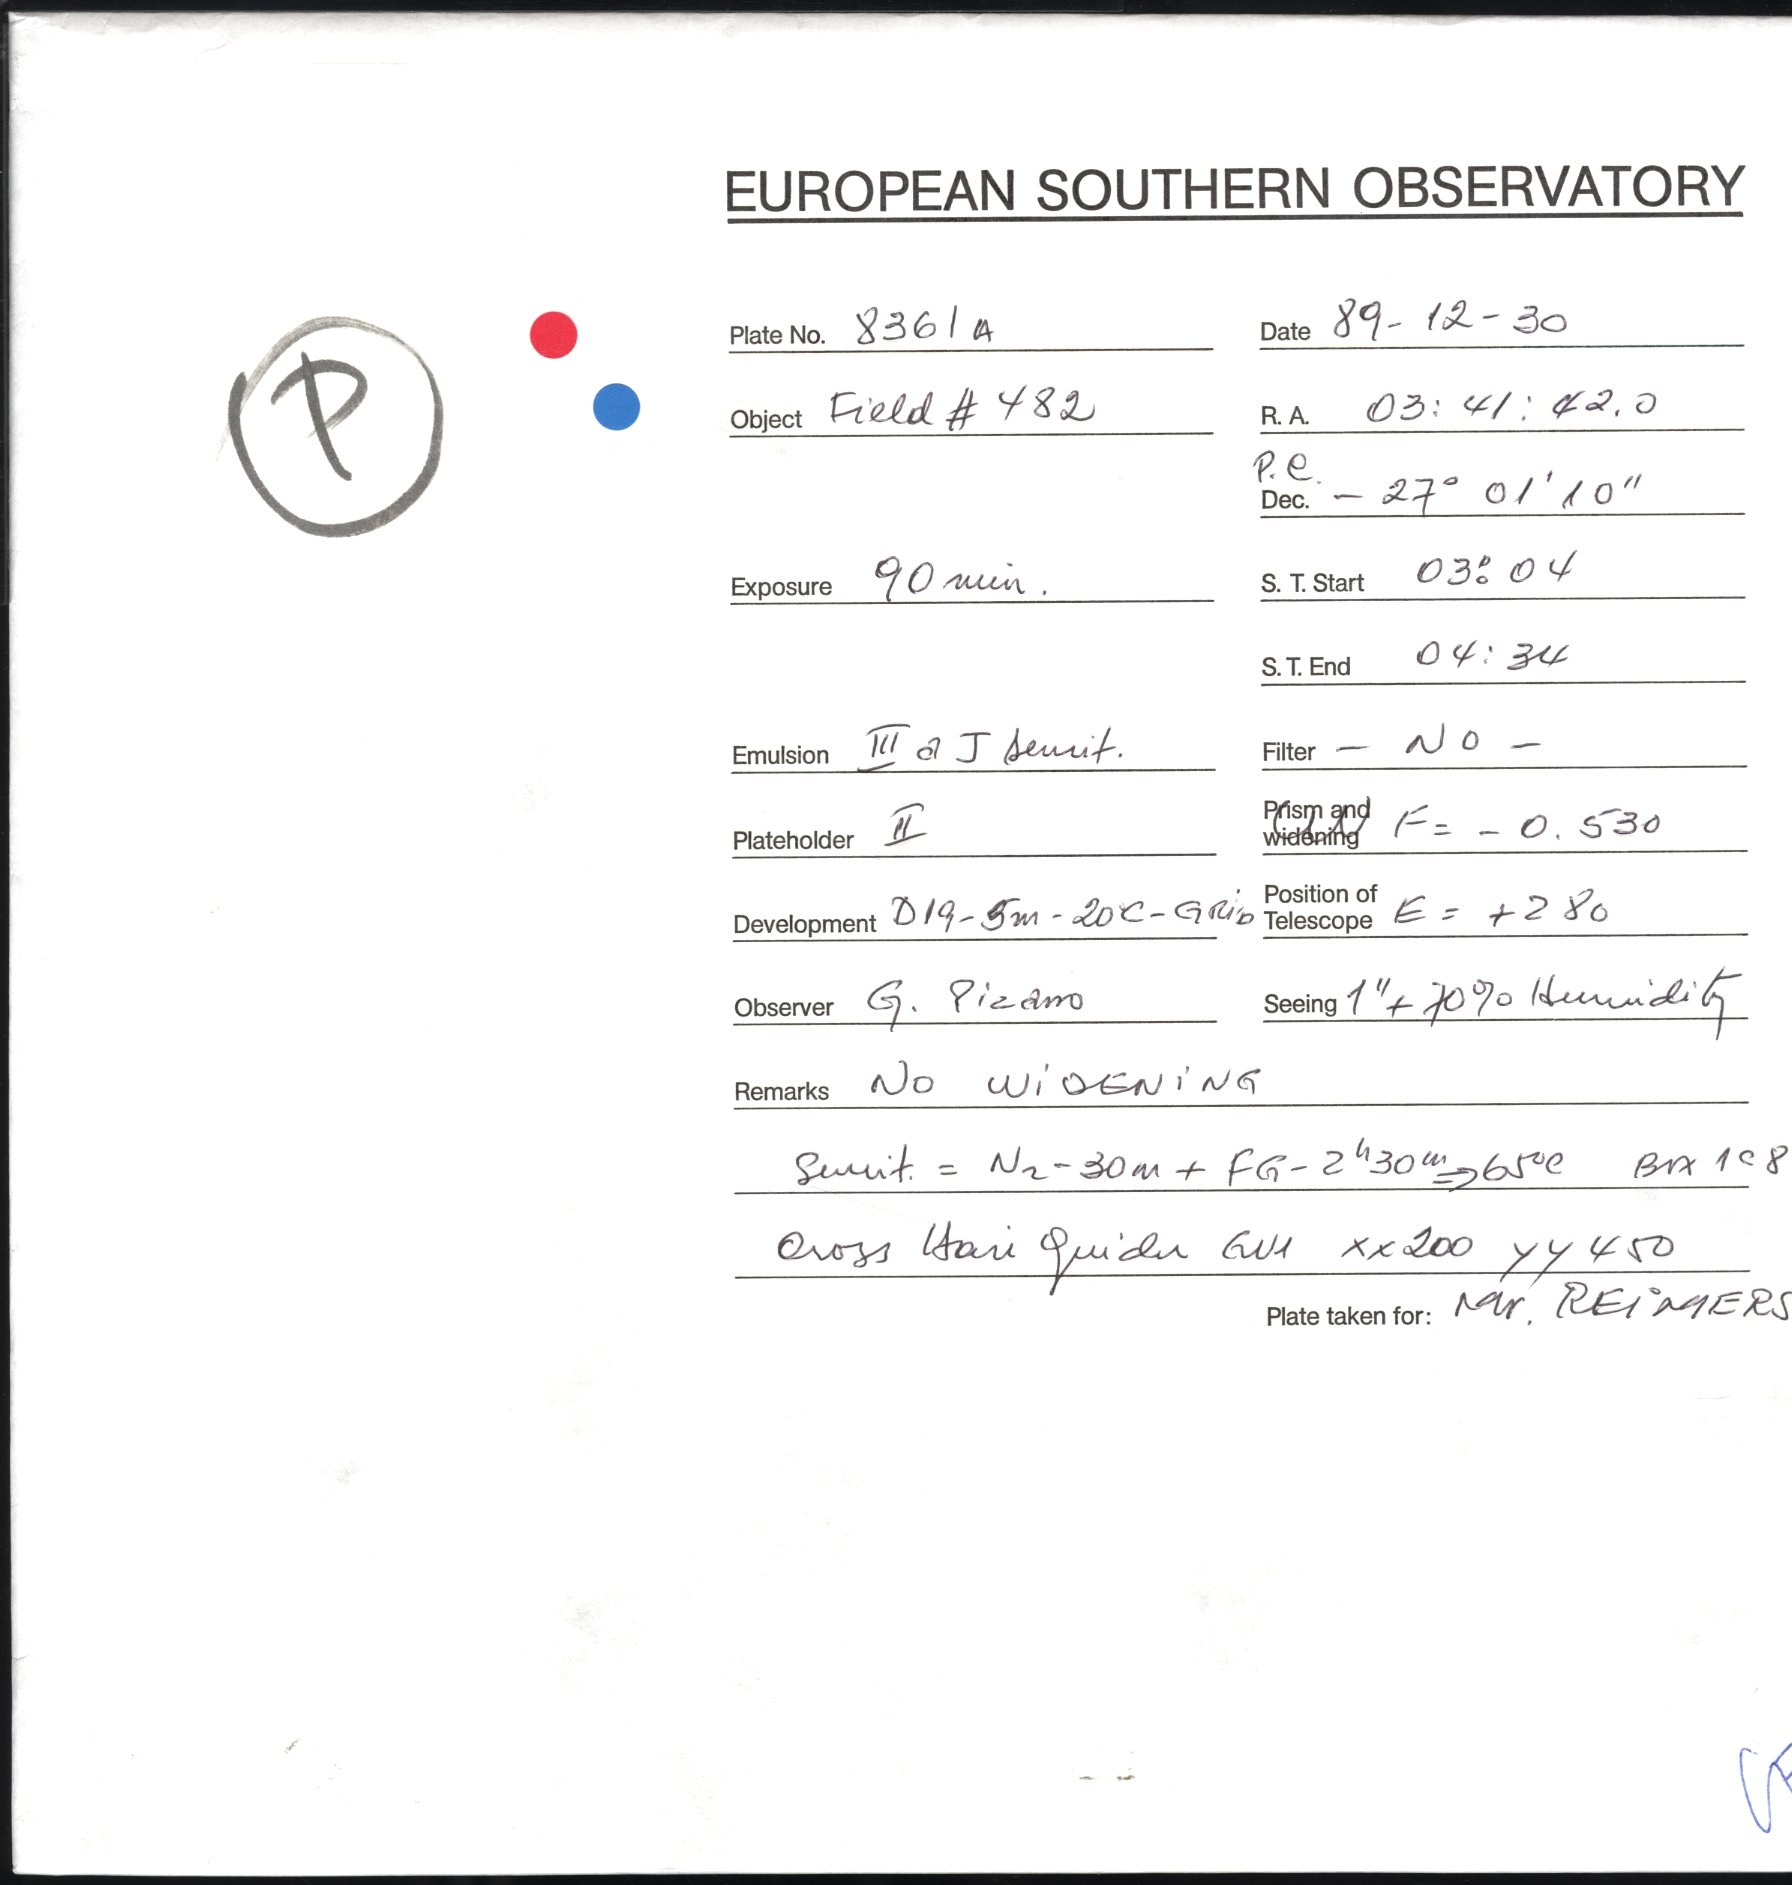 EUROPEAN SOUTHERN OBSERVATORY
P
Plate No. 8361A Date 89-12-30
Object Field # 482 R. A. 03:41:42.0
P.C.
Dec. - 27° 01' 10"
Exposure 90 min. S. T. Start 03:04
S. T. End 04:34
Emulsion III a J sensit. Filter - NO -
Plateholder II Prism and widening F= - 0.530
Development D19-5m-20°C- Position of Telescope E = +280
Observer G. Pizarro Seeing 1" + 70% Humidity
Remarks NO WIDENING
Sensit. = N2-30m + FG-2h30m => 65°C
Cross Hair Guider xx200 yy450
Plate taken for: Mr. REIMERS